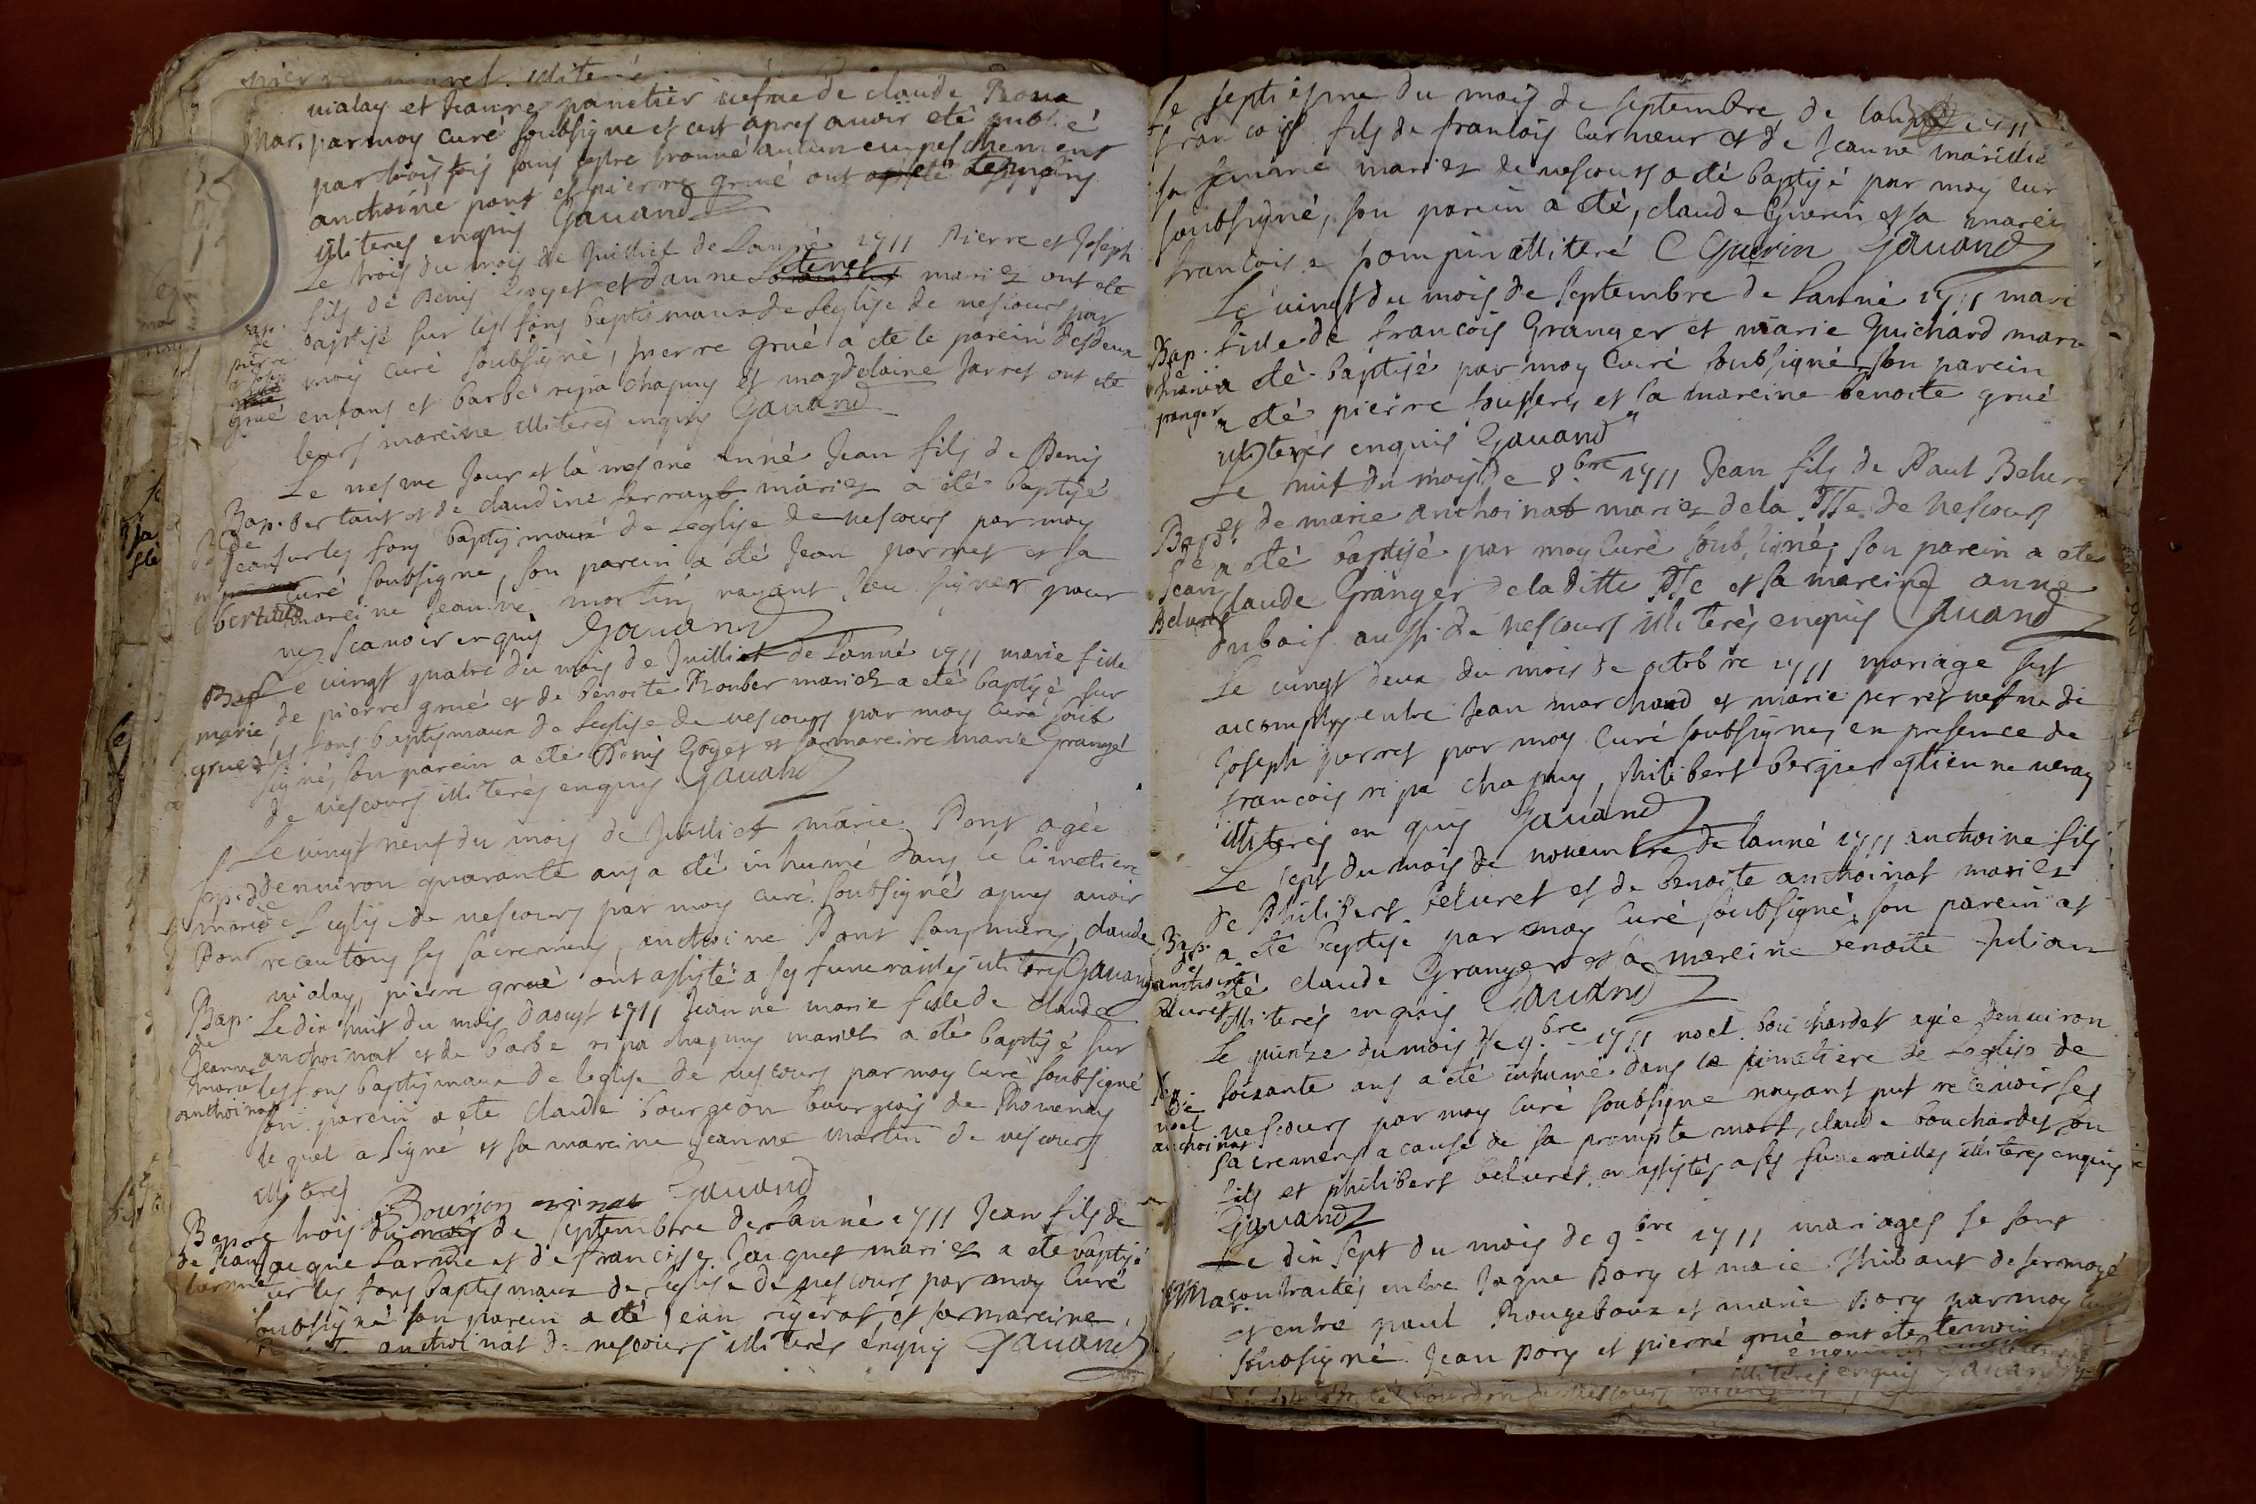 vialay et Jeanne panetier veufve de claude Roux
Mar. par moy curé soubsigne et cest apres avoir eté publié
par trois fois sans estre trouvé aucun empeschement
anthoine pont et pierre grué ont eté tesmoins
illiteres enquis Gavand
Le trois du mois de Juilliet de Lanné 1711 Pierre et Joseph
fils de Denis Goyet et danne mariez ont eté
Bap. de pierre et Joseph
baptisé sur les fons baptismaux de Leglise de vescours par
moy curé soubsigné, pierre grué a eté le parein des deux
grué enfans et barbe ripa chapuy et magdelaine Jarret ont eté
leurs mareine illiteres enquis Gavand
Le mesme Jour et la mesme anné Jean fils de Denis
Bap. bertaut et de claudine ferrant mariez a eté baptisé
de Jean sur les fons baptismaux de Leglise de vescours par moy
curé soubsigne, son parein a eté Jean parnet et sa
bertaud mareine Jeanne martin, nayant sceu signer pour
ne scavoir enquis Gavand
Bap. Le vingt quatre du mois de Juilliet de Lanné 1711 marie fille
marie de pierre grué et de benoite Rouber mariez a eté baptisé sur
gruez les fons baptismaux de Leglise de vescours par moy curé soub
signé, son parein a eté Denis Goyet et sa mareine marie Grangé
de vescours illiterés enquis Gavand
Le vingt neuf du mois de Juilliet marie Pont agée
Sep. de denviron quarante ans a eté inhumé dans le cimetiere
marie de Leglise de vescours par moy curé soubsigné apres avoir
Pont receu tous ses sacremens, anthoine Pont son mery, claude
vialay, pierre grué ont assisté a ses funerailles illiteres Gavand
Bap. Le dix huit du mois daoust 1711 Jeanne marie fille de claude
de Jeanne anthoinat et de barbe ripa chapuy mariez a eté baptisé sur
marie les fons baptismaux de leglise de vescours par moy curé soubsigné
anthoinat son parein a eté claude bourgeon bourgois de Romenay
le quel a signé et sa mareine Jeanne martin de vescours
illiteres Bourjon Gavand
Bap. Le trois du mois de septembre de Lanné 1711 Jean fils de
de Jean Jacque Larme et de francoise Jacquet mariez a eté baptisé
larme sur les fons baptismaux de Leglise de vescours par moy curé
soubsigné son parein a eté Jean rigerat et sa mareine
anthoinat de vescours illiterés enquis Gavand
Le septiesme du mois de septembre de lanné 1711
francois fils de francois curnœur et de Jeanne
sa femme mariez de vescours a eté baptisé par moy cur
soubsigné, son parein a eté, claude Guerin et sa marein
francoise pompin illiteré C Guerin Gavand
Le vingt du mois de septembre de Lanné 1711 mari
Bap. fille de francois Granger et marie Guichard marie
de maria a eté baptisé par moy curé soubsigné son parein
granger a eté pierre et la mareine benoite grué
illiterés enquis Gavand
Le huit du mois de 8.bre 1711 Jean fils de Paul Belure
Bap. et de marie anthoinat mariez de la Psse de vescours
de Jean a eté baptisé par moy curé soubsigné, son parein a eté
Belure Claude Granger de la ditte Psse et sa mareine anne
dubois aussi de vescours illiterés enquis Gavand
Le vingt deux du mois de octobre 1711 mariage sest
accomply entre Jean marchand et marie perret veufve de
Joseph perret par moy curé soubsigne, en presence de
francois ripa chapuy, philibert bergier estienne veray
illiterés enquis Gavand
Le sept du mois de novembre de lanné 1711 anthoine fils
de Philibert beluret et de benoite anthoinat mariez
Bap. de a eté baptisé par moy curé soubsigné, son parein at
anthoine eté claude Granger et sa mareine benoite Juliau
Beluret illiterés enquis Gavand
Le quinze du mois de 9.bre 1711 noel bouchardet agée denviron
Sep. soixante ans a eté inhumé dans le cimetiere de Leglise de
de noel vescours par moy curé soubsigne nayant put recevoir ses
anthoinat sacremens a cause de sa prompte mort, claude bouchardet son
fils et philibert beluret on assistés a ses funerailles illiteres enquis
Gavand
Le dix sept du mois de 9bre 1711 mariages se sont
Mar. contraités entre Jaque Pory et marie Thibaut de sermoyé
et entre paul Rougeboux et marie Pory par moy curé
soubsigné Jean Pory et pierre grué ont eté temoin
illiteres enquis Gavand